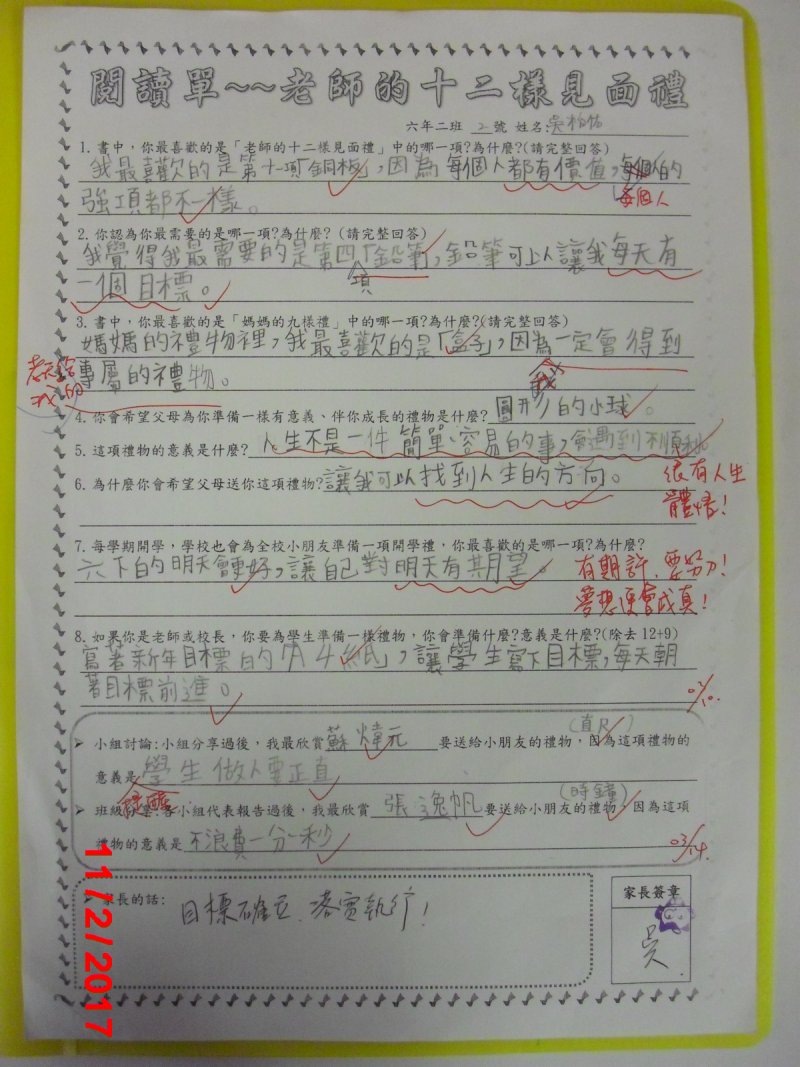 閱讀單~~老師的十二樣見面禮
六年二班 2 號 姓名:吳柏佑
1. 書中，你最喜歡的是「老師的十二樣見面禮」中的哪一項?為什麼?(請完整回答)
我最喜歡的是第十一項「銅板」，因為每個人都有價值，每個人的
每個人
強項都不一樣。
2. 你認為你最需要的是哪一項?為什麼? (請完整回答)
我覺得我最需要的是第四「鉛筆」，鉛筆可以讓我每天有
項
一個目標。
3. 書中，你最喜歡的是「媽媽的九樣禮」中的哪一項?為什麼?(請完整回答)
媽媽的禮物裡，我最喜歡的是「盒子」，因為一定會得到
我
專屬的禮物。
4. 你會希望父母為你準備一樣有意義、伴你成長的禮物是什麼? 圓形的小球。
5. 這項禮物的意義是什麼? 人生不是一件簡單、容易的事，會遇到不順利。
6. 為什麼你會希望父母送你這項禮物?讓我可以找到人生的方向。
很有人生
體悟!
7. 每學期開學，學校也會為全校小朋友準備一項開學禮，你最喜歡的是哪一項?為什麼?
六下的明天會更好，讓自己對明天有期望。
有期許，要努力!
夢想便會成真!
8. 如果你是老師或校長，你要為學生準備一樣禮物，你會準備什麼?意義是什麼?(除去 12+9)
寫著新年目標的「A4紙」，讓學生寫下目標，每天朝
著目標前進。
02/10.
(直尺)
小組討論:小組分享過後，我最欣賞蘇煒元要送給小朋友的禮物，因為這項禮物的
意義是學生做人要正直
(時鐘)
各小組代表報告過後，我最欣賞 張逸帆 要送給小朋友的禮物，因為這項
禮物的意義是不浪費一分一秒
03/14.
家長的話:
目標確立、落實執行!
家長簽章
吳
11/2/2017